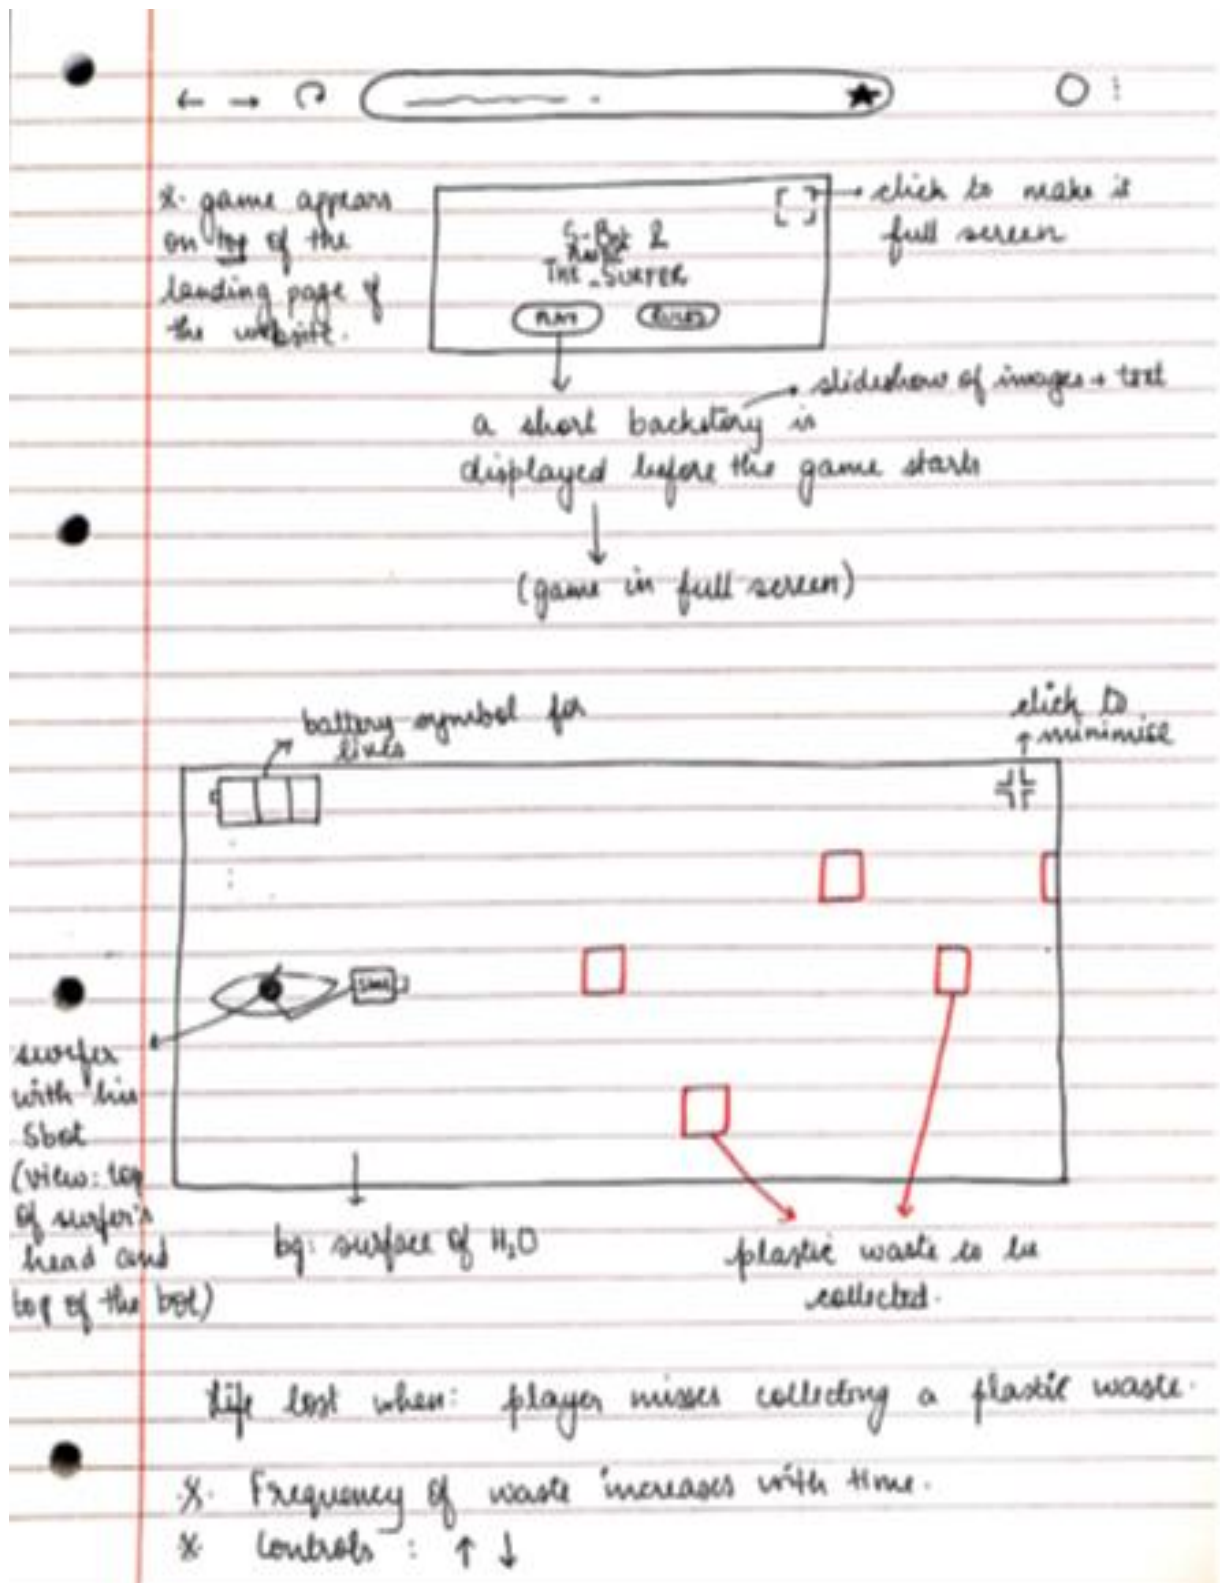 *. game appears
on top of the
landing page of
the website.
click to make it
full screen
S-Bot &
THE SURFER
PLAY
RULES
slideshow of images + text
a short backstory is
displayed before the game starts
(game in full screen)
battery symbol for
lives
click to
minimise
Sbot
surfer
with his
Sbot
(view: top
of surfer's
head and
top of the bot)
bg: surface of H₂O
plastic waste to be
collected.
Life lost when: player misses collecting a plastic waste.
*. Frequency of waste increases with time.
* Controls : ↑ ↓